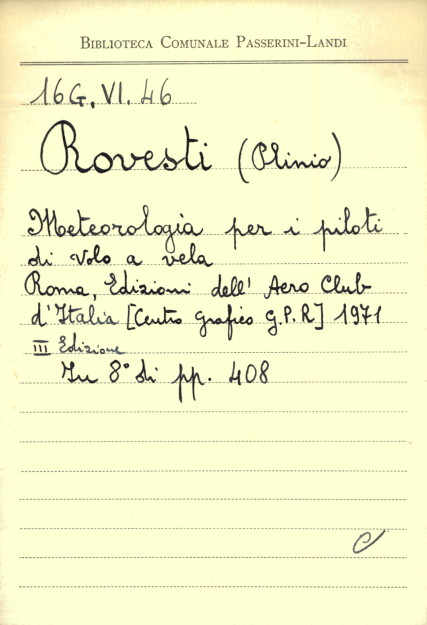 BIBLIOTECA COMUNALE PASSERINI-LANDI
16G. VI. 46
Rovesti (Plinio)
Meteorologia per i piloti
di volo a vela
Roma, Edizioni dell' Aero Club
d'Italia [Centro grafico G.P.R] 1971
III Edizione
In 8° di pp. 408